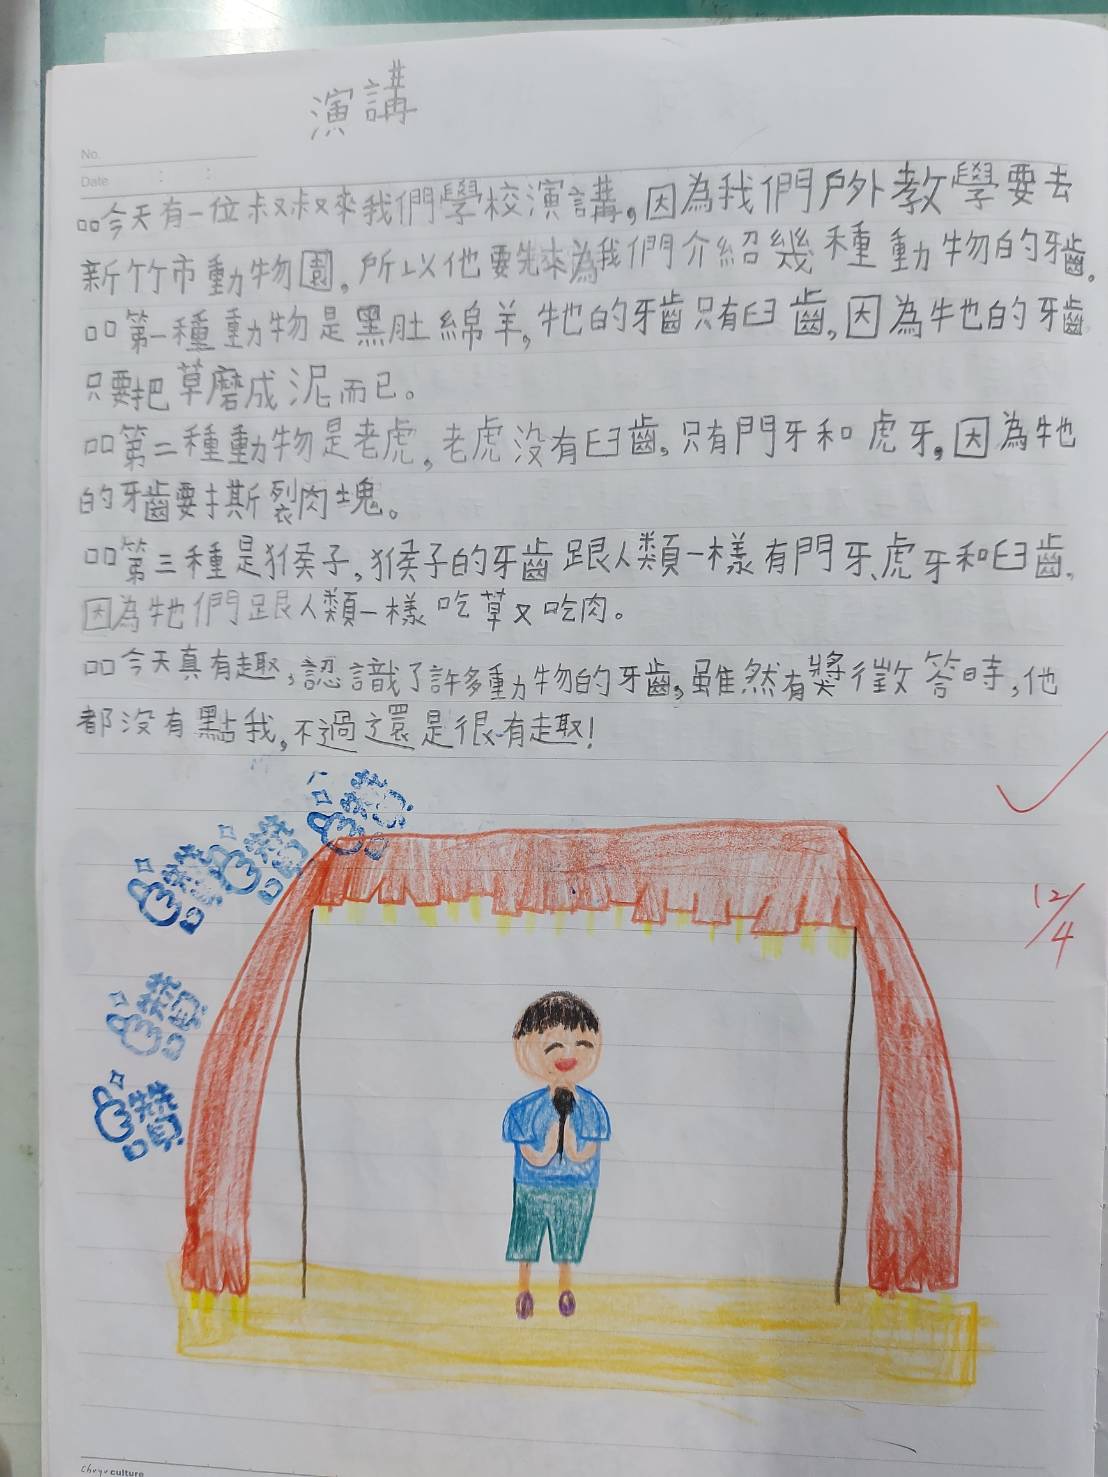 演講
No.
Date : :
□□今天有一位叔叔來我們學校演講,因為我們戶外教學要去
新竹市動物園,所以他要先來為我們介紹幾種動物的牙齒。
□□第一種動物是黑肚綿羊,牠的牙齒只有臼齒,因為牠的牙齒
只要把草磨成泥而已。
□□第二種動物是老虎,老虎沒有臼齒,只有門牙和虎牙,因為牠
的牙齒要撕裂肉塊。
□□第三種是猴子,猴子的牙齒跟人類一樣有門牙、虎牙和臼齒,
因為牠們跟人類一樣吃草又吃肉。
□□今天真有趣,認識了許多動物的牙齒,雖然有獎徵答時,他
都沒有點我,不過還是很有趣!
12/4
讚
讚
讚
讚
讚
Chuyu culture